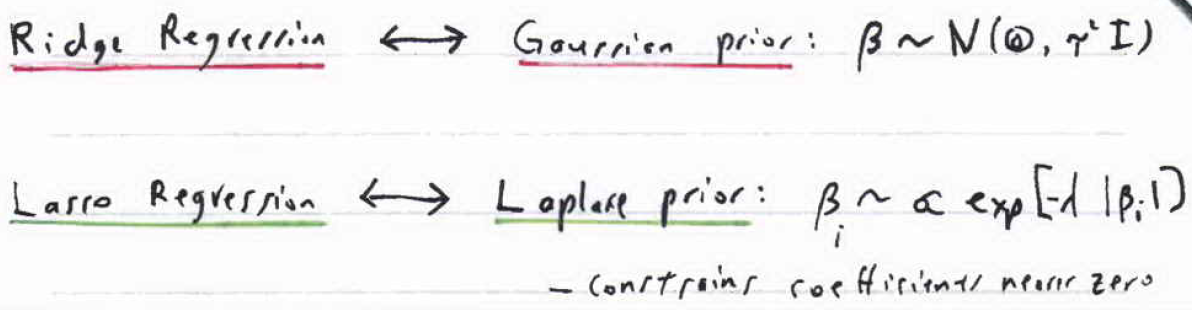 Ridge Regression ↔ Gaussian prior: β ~ N(0, τ² I)
Lasso Regression ↔ Laplace prior: β_i ~ ∝ exp[-λ |β_i|)
- constrains coefficients near zero